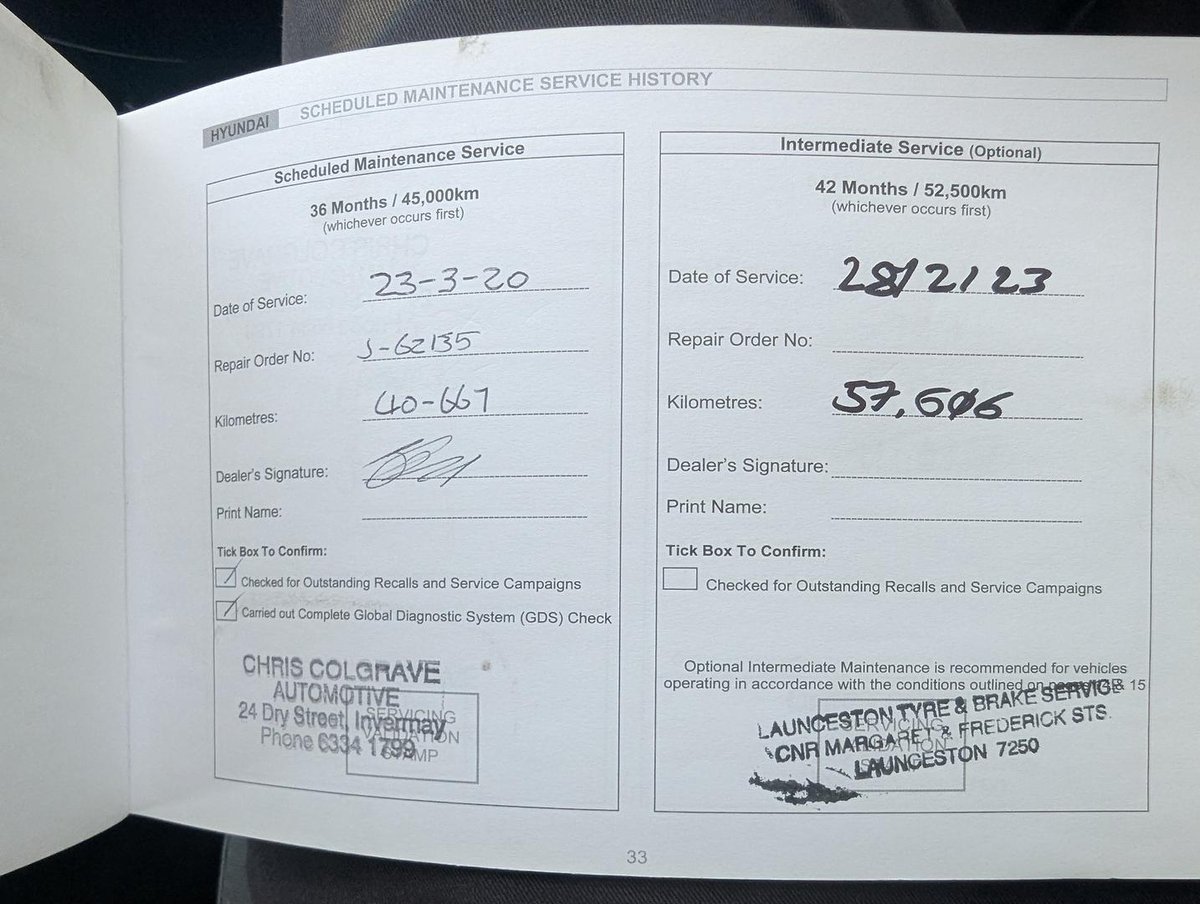 HYUNDAI SCHEDULED MAINTENANCE SERVICE HISTORY
Scheduled Maintenance Service
36 Months / 45,000km
(whichever occurs first)
Date of Service: 23-3-20
Repair Order No: J-62135
Kilometres: 40-667
Dealer's Signature:
Print Name:
Tick Box To Confirm:
Checked for Outstanding Recalls and Service Campaigns
Carried out Complete Global Diagnostic System (GDS) Check
CHRIS COLGRAVE
AUTOMOTIVE
24 Dry Street, Invermay
Phone 6334 1799
SERVICING
VALIDATION
STAMP
Intermediate Service (Optional)
42 Months / 52,500km
(whichever occurs first)
Date of Service: 28/2/23
Repair Order No:
Kilometres: 57,606
Dealer's Signature:
Print Name:
Tick Box To Confirm:
Checked for Outstanding Recalls and Service Campaigns
Optional Intermediate Maintenance is recommended for vehicles
operating in accordance with the conditions outlined on & 15
LAUNCESTON TYRE & BRAKE SERVICE
CNR MARGARET & FREDERICK STS.
LAUNCESTON 7250
SERVICING